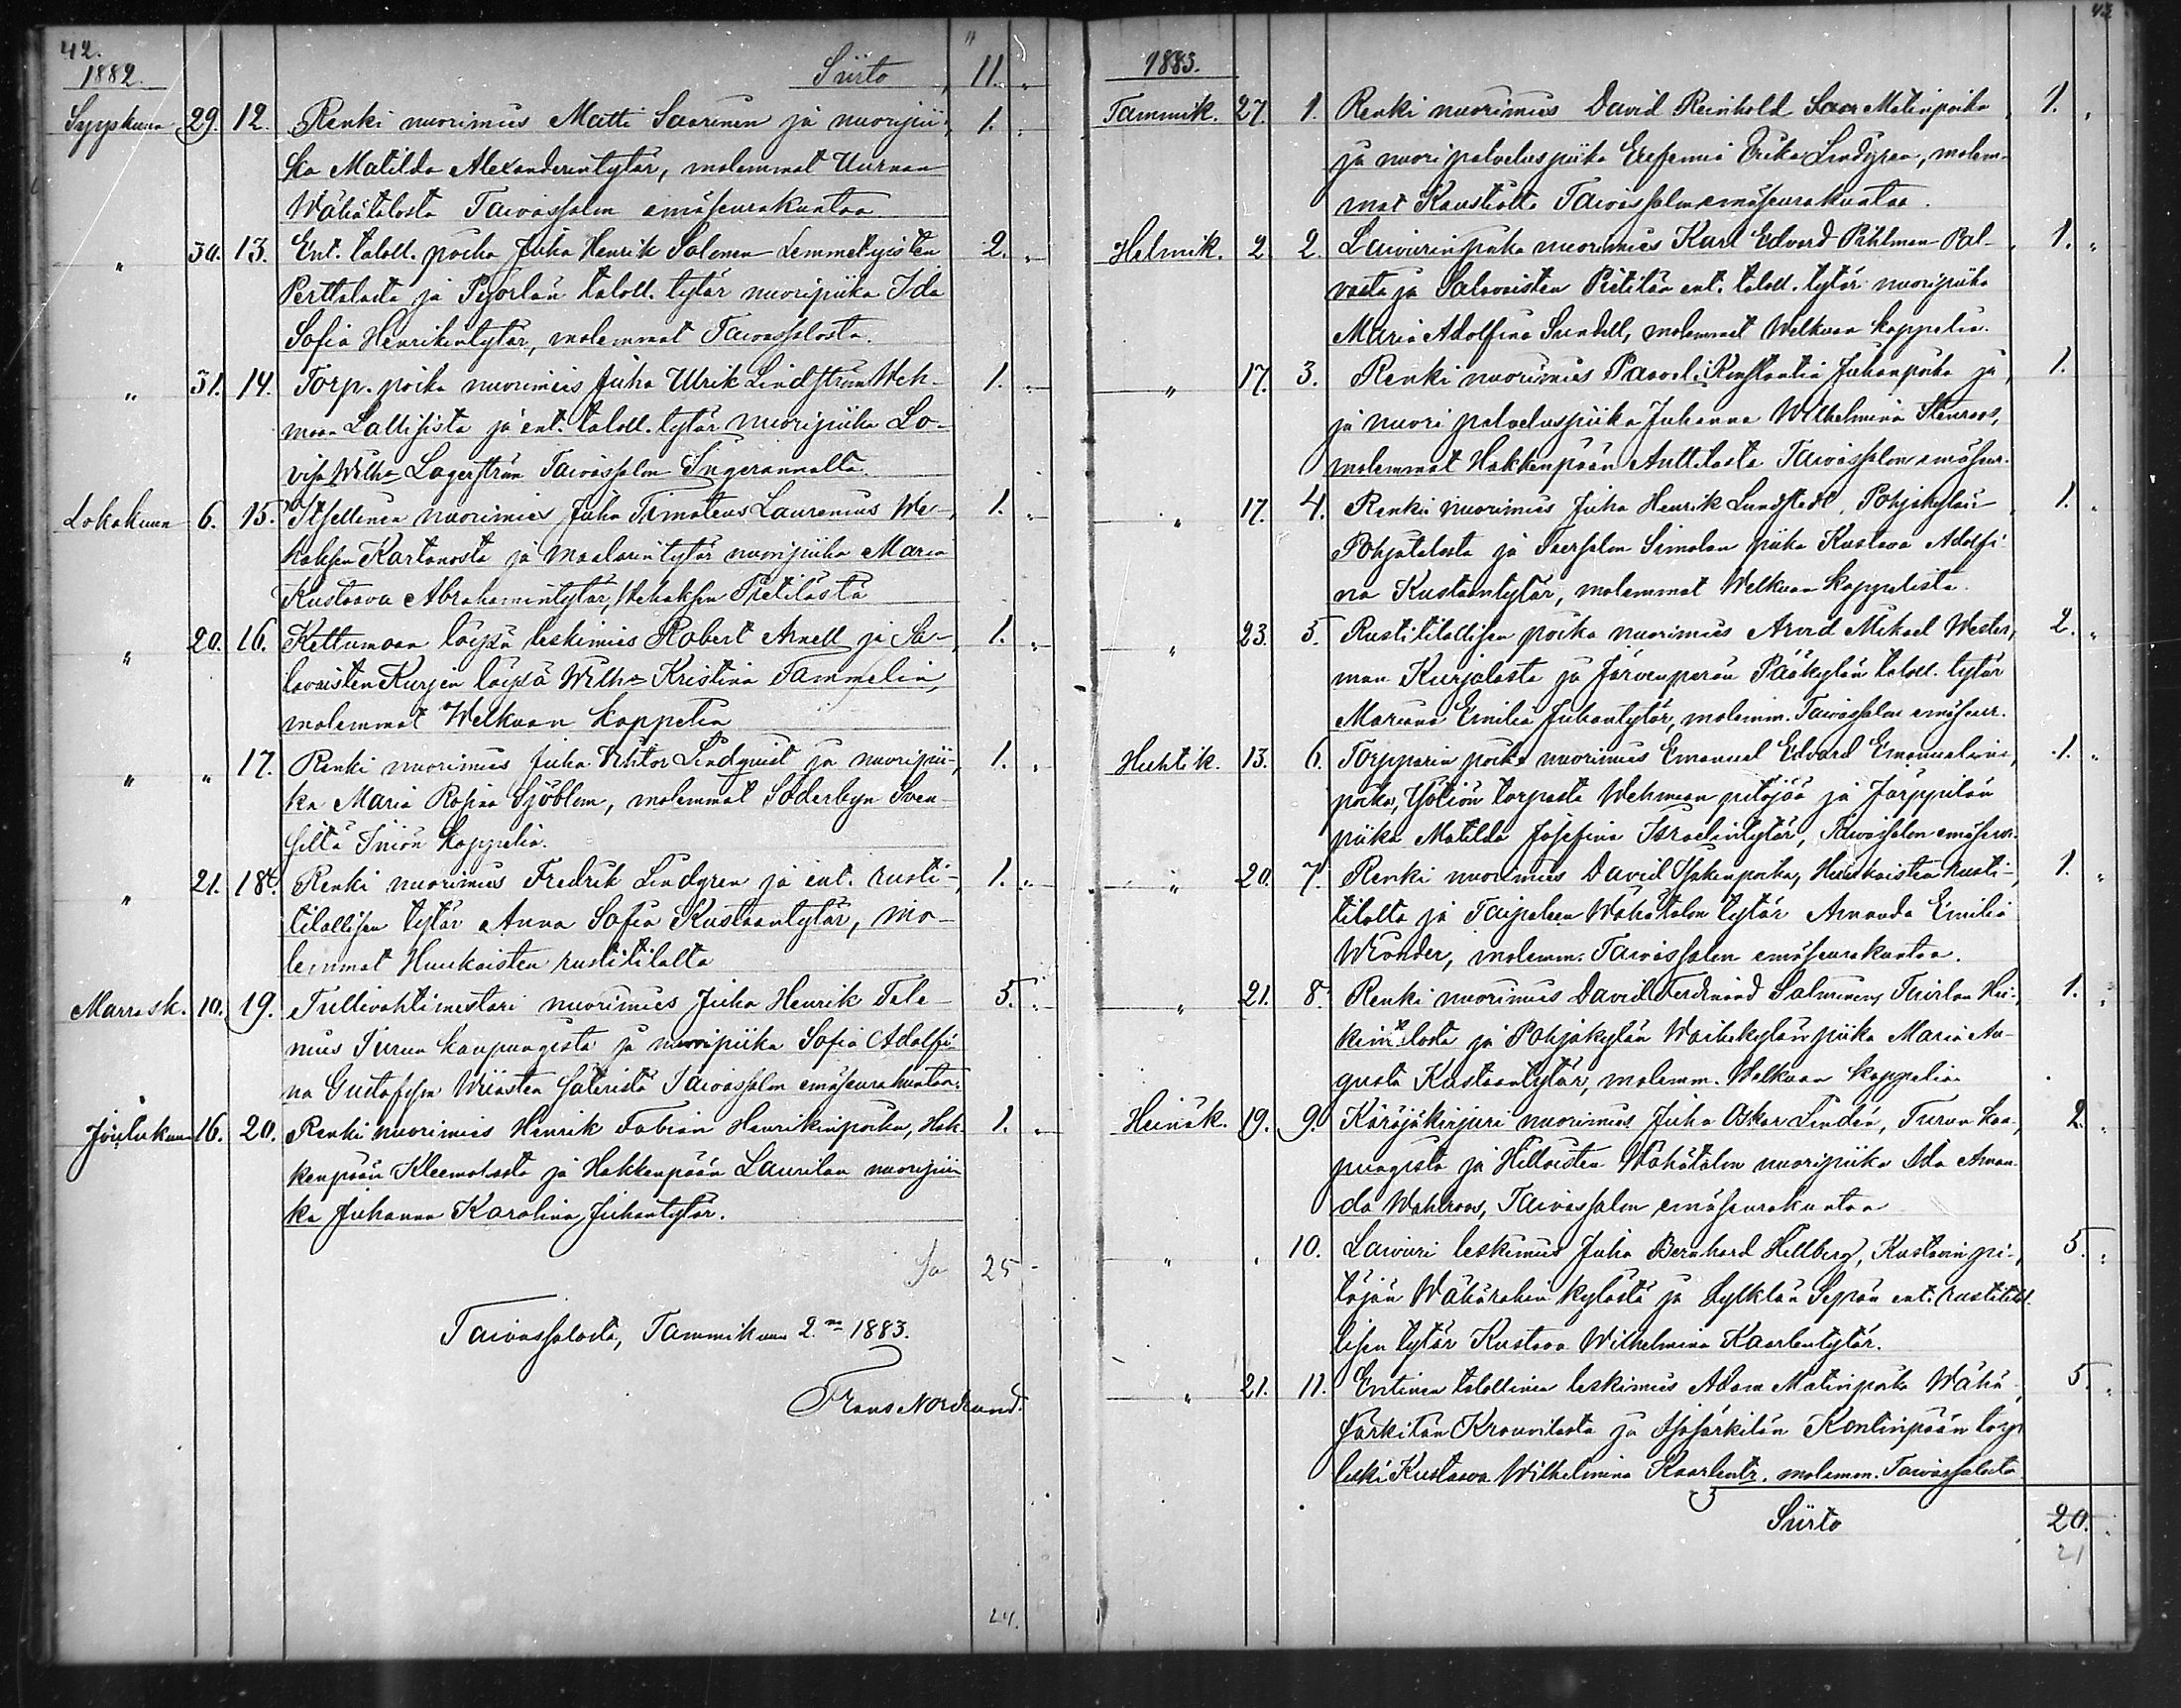 42.
1882. Siirto 11. "
Syyskuun 29. 12. Renki nuorimies Matti Saarinen ja nuoripii- 1. "
ka Matilda Alexanderintytär, molemmat Uurnan
Wähätalosta Taivassalon emäseurakuntaa
" 30. 13. Ent. taloll. poika Juha Henrik Salonen Lemmetyisten 2. "
Perttalasta ja Pyörlän taloll. tytär nuoripiika Ida
Sofia Henrikintytär, molemmat Taivassalosta.
" 31. 14. Torp. poika nuorimies Juha Ulrik Lindström Weh- 1. "
maan Lallisista ja ent. taloll. tytär nuoripiika Lo-
visa Wilh:a Lagerström Taivassalon Ingerannalta.
Lokakuun 6. 15. Itsellinen nuorimies Juha Timoteus Laurenius We- 1. "
haksen Kartanosta ja maalarintytär nuoripiika Maria
Kustaava Abrahamintytär, Wehaksen Pretilästä
" 20. 16. Kettumaan löysän leskimies Robert Arnell ja Sa- 1. "
lavaisten Kurjen löysä Wilh:a Kristina Tammelin,
molemmat Welkuan kappelia
" " 17. Renki nuorimies Juha Viktor Lindqvist ja nuoripii- 1. "
ka Maria Rosina Sjöblom, molemmat Söderbyn Sven-
siltä Iniön kappelia.
" 21. 18. Renki nuorimies Fredrik Lindgren ja ent. rusti- 1. "
tilallisen tytär Anna Sofia Kustaantytär, mo-
lemmat Hunkaisten rustitilalta
Marrask. 10. 19. Tullivahtimestari nuorimies Juha Henrik Tale- 5. "
nius Turun kaupungista ja nuoripiika Sofia Adolfi-
na Gustafsson Wiiasten säteristä Taivassalon emäseurakuntaa.
Joulukuun 16. 20. Renki nuorimies Henrik Fabian Henrikinpoika, Hak- 1. "
kenpään Kleemolasta ja Hakkenpään Laurilan nuoripii-
ka Juhanna Karolina Juhantytär.
Sa 25 -
Taivassalosta, Tammikuun 2.na 1883.
Frans Nordlund.
24.
43
1883.
Tammik. 27. 1. Renki nuorimies David Reinhold Matinpoika 1. "
ja nuori palveluspiika Eufemia Erika Lindgren, molem-
mat Kaustiolta Taivassalon emäseurakuntaa.
Helmik. 2. 2. Laivurinpoika nuorimies Karl Edvard Pihlman Pal- 1. "
vasta ja Salavaisten Prätitän ent. taloll. tytär nuoripiika
Maria Adolfina Sundell, molemmat Welkuan kappelia.
" 17. 3. Renki nuorimies Paavali Konstantin Juhanpoika ja 1.
ja nuori palveluspiika Juhanna Wilhelmina Stenroos,
molemmat Hakkenpään Anttilasta Taivassalon emäseur.
" 17. 4. Renki nuorimies Juha Henrik Lundstedt, Pohjakylän 1. "
Pohjatalosta ja Teersalon Simolan piika Kustava Adolfi-
na Kustaantytär, molemmat Welkuan kappelista.
" 23. 5. Rustitilallisen poika nuorimies Arvid Mikael Wester- 2. "
man Kurjalasta ja Järvenperän Pääkylän taloll. tytär
Mariana Emilia Juhantytär, molemm. Taivassalon emäseur.
Huhtik. 13. 6. Torpparin poika nuorimies Emanuel Edvard Emanuelin- 1. "
poika, Yötiön torpasta Wehmaan pitäjää ja Järppilän
piika Matilda Josefina Israelintytär, Taivassalon emäseur.
" 20. 7. Renki nuorimies David Isakinpoika, Hunkaisten rusti- 1. "
tilalta ja Taipaleen Wähätalon tytär Amanda Emilia
Wönder, molemm. Taivassalon emäseurakuntaa.
" 21. 8. Renki nuorimies David Ferdinand Salminen, Tuirlan Hei- 1. "
kintalosta ja Pohjakylän Waihekylän piika Maria Au-
gusta Kustaantytär, molemm. Welkuan kappelia.
Heinäk. 19. 9. Käräjäkirjuri nuorimies Juha Oskar Lindén, Turun kau- 2. "
pungista ja Hilloisten Wähätalon nuoripiika Ida Aman-
da Wahlroos, Taivassalon emäseurakuntaa
" " 10. Laivuri leskimies Juha Bernhard Hellberg, Kustavin pi- 5. "
täjän Wähärahin kylästä ja Lylklän Sepän ent. rustitilal-
lisen tytär Kustava Wilhelmina Kaarlentytär.
" 21. 11. Entinen talollinen leskimies Adam Matinpoika Wähä- 5. "
Särkilän Krouvilasta ja Isosärkilän Kontinpään torp.
leski Kustaava Wilhelmina Kaarlentr. molemm. Taivassalosta
Siirto 20. "
21